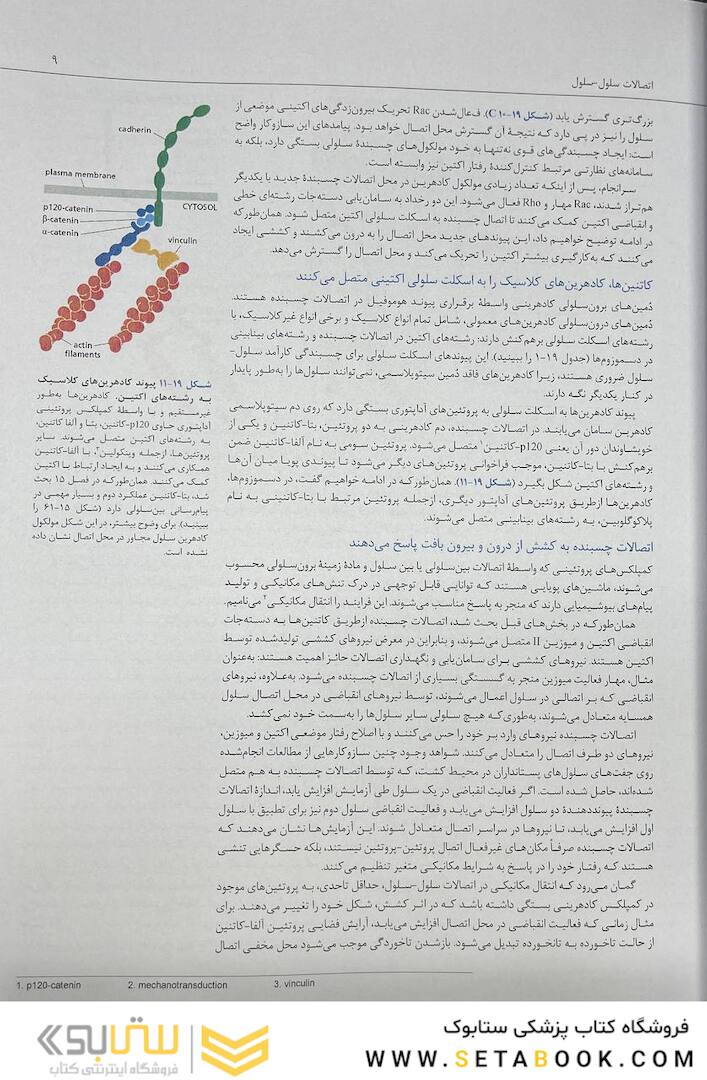 ۹
اتصالات سلول-سلول
بزرگ‌تری گسترش یابد (شکل ۱۹-۱۰ C). فعال‌شدن Rac تحریک بیرون‌زدگی‌های اکتینی موضعی از
سلول را نیز در پی دارد که نتیجهٔ آن گسترش محل اتصال خواهد بود. پیامدهای این سازوکار واضح
است: ایجاد چسبندگی‌های قوی نه‌تنها به خود مولکول‌های چسبندهٔ سلولی بستگی دارد، بلکه به
سامانه‌های نظارتی مرتبط کنترل‌کنندهٔ رفتار اکتین نیز وابسته است.
سرانجام، پس از اینکه تعداد زیادی مولکول کادهرین در محل اتصالات چسبندهٔ جدید با یکدیگر
هم‌تراز شدند، Rac مهار و Rho فعال می‌شود. این دو رخداد به سامان‌یابی دسته‌جات رشته‌ای خطی
و انقباضی اکتین کمک می‌کنند تا اتصال چسبنده به اسکلت سلولی اکتین متصل شود. همان‌طورکه
در ادامه توضیح خواهیم داد، این پیوندهای جدید محل اتصال را به درون می‌کشند و کششی ایجاد
می‌کنند که به‌کارگیری بیشتر اکتین را تحریک می‌کند و محل اتصال را گسترش می‌دهد.
کاتنین‌ها، کادهرین‌های کلاسیک را به اسکلت سلولی اکتینی متصل می‌کنند
دُمین‌های برون‌سلولی کادهرینی واسطهٔ برقراری پیوند هوموفیل در اتصالات چسبنده هستند.
دُمین‌های درون‌سلولی کادهرین‌های معمولی، شامل تمام انواع کلاسیک و برخی انواع غیرکلاسیک، با
رشته‌های اسکلت سلولی برهم‌کنش دارند: رشته‌های اکتین در اتصالات چسبنده و رشته‌های بینابینی
در دسموزوم‌ها (جدول ۱۹-۱ را ببینید). این پیوندهای اسکلت سلولی برای چسبندگی کارآمد سلول-
سلول ضروری هستند، زیرا کادهرین‌های فاقد دُمین سیتوپلاسمی، نمی‌توانند سلول‌ها را به‌طور پایدار
در کنار یکدیگر نگه دارند.
پیوند کادهرین‌ها به اسکلت سلولی به پروتئین‌های آداپتوری بستگی دارد که روی دم سیتوپلاسمی
کادهرین سامان می‌یابند. در اتصالات چسبنده، دم کادهرینی به دو پروتئین، بتا-کاتنین و یکی از
خویشاوندان دور آن یعنی p120-کاتنین۱ متصل می‌شود. پروتئین سومی به نام آلفا-کاتنین ضمن
برهم‌کنش با بتا-کاتنین، موجب فراخوانی پروتئین‌های دیگر می‌شود تا پیوندی پویا میان آن‌ها
و رشته‌های اکتین شکل بگیرد (شکل ۱۹-۱۱). همان‌طورکه در ادامه خواهیم گفت، در دسموزوم‌ها،
کادهرین‌ها ازطریق پروتئین‌های آداپتور دیگری، ازجمله پروتئین مرتبط با بتا-کاتنینی به نام
پلاکوگلوبین، به رشته‌های بینابینی متصل می‌شوند.
اتصالات چسبنده به کشش از درون و بیرون بافت پاسخ می‌دهند
کمپلکس‌های پروتئینی که واسطهٔ اتصالات بین‌سلولی یا بین سلول و مادهٔ زمینهٔ برون‌سلولی محسوب
می‌شوند، ماشین‌های پویایی هستند که توانایی قابل توجهی در درک تنش‌های مکانیکی و تولید
پیام‌های بیوشیمیایی دارند که منجر به پاسخ مناسب می‌شوند. این فرایند را انتقال مکانیکی۲ می‌نامیم.
همان‌طورکه در بخش‌های قبل بحث شد، اتصالات چسبنده ازطریق کاتنین‌ها به دسته‌جات
انقباضی اکتین و میوزین II متصل می‌شوند، و بنابراین در معرض نیروهای کششی تولیدشده توسط
اکتین هستند. نیروهای کششی برای سامان‌یابی و نگهداری اتصالات حائز اهمیت هستند: به‌عنوان
مثال، مهار فعالیت میوزین منجر به گسستگی بسیاری از اتصالات چسبنده می‌شود. به‌علاوه، نیروهای
انقباضی که بر اتصالی در سلول اعمال می‌شوند، توسط نیروهای انقباضی در محل اتصال سلول
همسایه متعادل می‌شوند، به‌طوری‌که هیچ سلولی سایر سلول‌ها را به‌سمت خود نمی‌کشد.
اتصالات چسبنده نیروهای وارد بر خود را حس می‌کنند و با اصلاح رفتار موضعی اکتین و میوزین،
نیروهای دو طرف اتصال را متعادل می‌کنند. شواهد وجود چنین سازوکارهایی از مطالعات انجام‌شده
روی جفت‌های سلول‌های پستانداران در محیط کشت، که توسط اتصالات چسبنده به هم متصل
شده‌اند، حاصل شده است. اگر فعالیت انقباضی در یک سلول طی آزمایش افزایش یابد، اندازهٔ اتصالات
چسبندهٔ پیونددهندهٔ دو سلول افزایش می‌یابد و فعالیت انقباضی سلول دوم نیز برای تطبیق با سلول
اول افزایش می‌یابد، تا نیروها در سراسر اتصال متعادل شوند. این آزمایش‌ها نشان می‌دهند که
اتصالات چسبنده صرفاً مکان‌های غیرفعال اتصال پروتئین-پروتئین نیستند، بلکه حسگرهایی تنشی
هستند که رفتار خود را در پاسخ به شرایط مکانیکی متغیر تنظیم می‌کنند.
گمان می‌رود که انتقال مکانیکی در اتصالات سلول-سلول، حداقل تاحدی، به پروتئین‌های موجود
در کمپلکس کادهرینی بستگی داشته باشد که در اثر کشش، شکل خود را تغییر می‌دهند. برای
مثال زمانی که فعالیت انقباضی در محل اتصال افزایش می‌یابد، آرایش فضایی پروتئین آلفا-کاتنین
از حالت تاخورده به تانخورده تبدیل می‌شود. بازشدن تاخوردگی موجب می‌شود محل مخفی اتصال
cadherin
plasma membrane
CYTOSOL
p120-catenin
β-catenin
α-catenin
vinculin
actin
filaments
شکل ۱۹-۱۱ پیوند کادهرین‌های کلاسیک
به رشته‌های اکتین. کادهرین‌ها به‌طور
غیرمستقیم و با واسطهٔ کمپلکس پروتئینی
آداپتوری حاوی p120-کاتنین، بتا و آلفا کاتنین
به رشته‌های اکتین متصل می‌شوند. سایر
پروتئین‌ها، ازجمله وینکولین۳، با آلفا-کاتنین
همکاری می‌کنند و به ایجاد ارتباط با اکتین
کمک می‌کنند. همان‌طورکه در فصل ۱۵ بحث
شد، بتا-کاتنین عملکرد دوم و بسیار مهمی در
پیام‌رسانی بین‌سلولی دارد (شکل ۱۵-۶۱ را
ببینید). برای وضوح بیشتر، در این شکل مولکول
کادهرین سلول مجاور در محل اتصال نشان داده
نشده است.
1. p120-catenin 2. mechanotransduction 3. vinculin
فروشگاه کتاب پزشکی ستابوک
WWW.SETABOOK.COM
ستابوک
فروشگاه اینترنتی کتاب